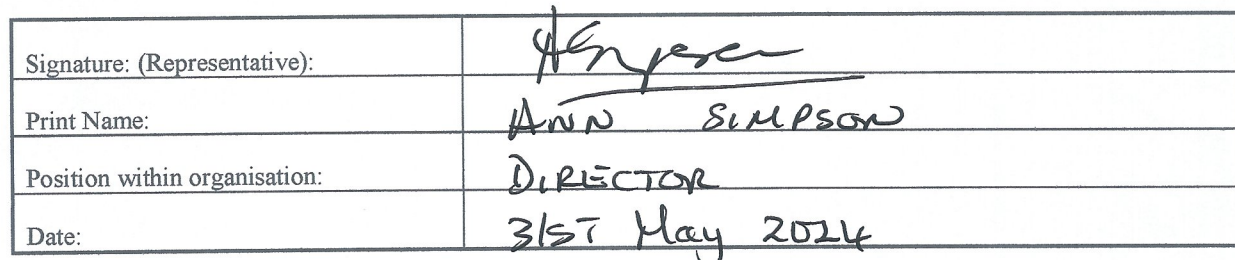 Signature: (Representative):
Print Name: ANN SIMPSON
Position within organisation: DIRECTOR
Date: 31ST May 2024